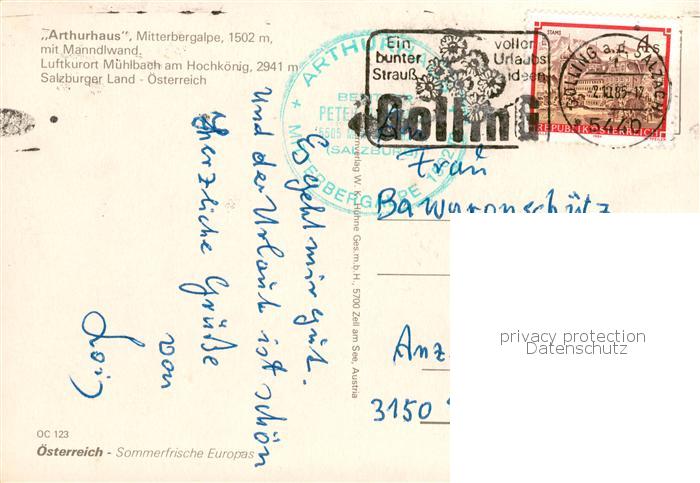 „Arthurhaus", Mitterbergalpe, 1502 m,
mit Manndlwand.
Luftkurort Mühlbach am Hochkönig, 2941 m
Salzburger Land - Österreich
Es geht mir gut.
Und der Urlaub ist schön
Herzliche Grüße
von
Lois
OC 123
Österreich - Sommerfrische Europas
W. K. Höhne Ges.m.b.H., 5700 Zell am See, Austria
+ ARTHURH
BES
PETE
5505
(SALZBURG)
MITTERBERGALPE 1502
Ein voller
bunter Urlaubs
Strauß ideen
Golling
GOLLING a. d. SALZACH
-2.10.85-17
5440
STAMS
4 S
REPUBLIK ÖSTERREICH
An
Frau
Anz
3150
privacy protection
Datenschutz